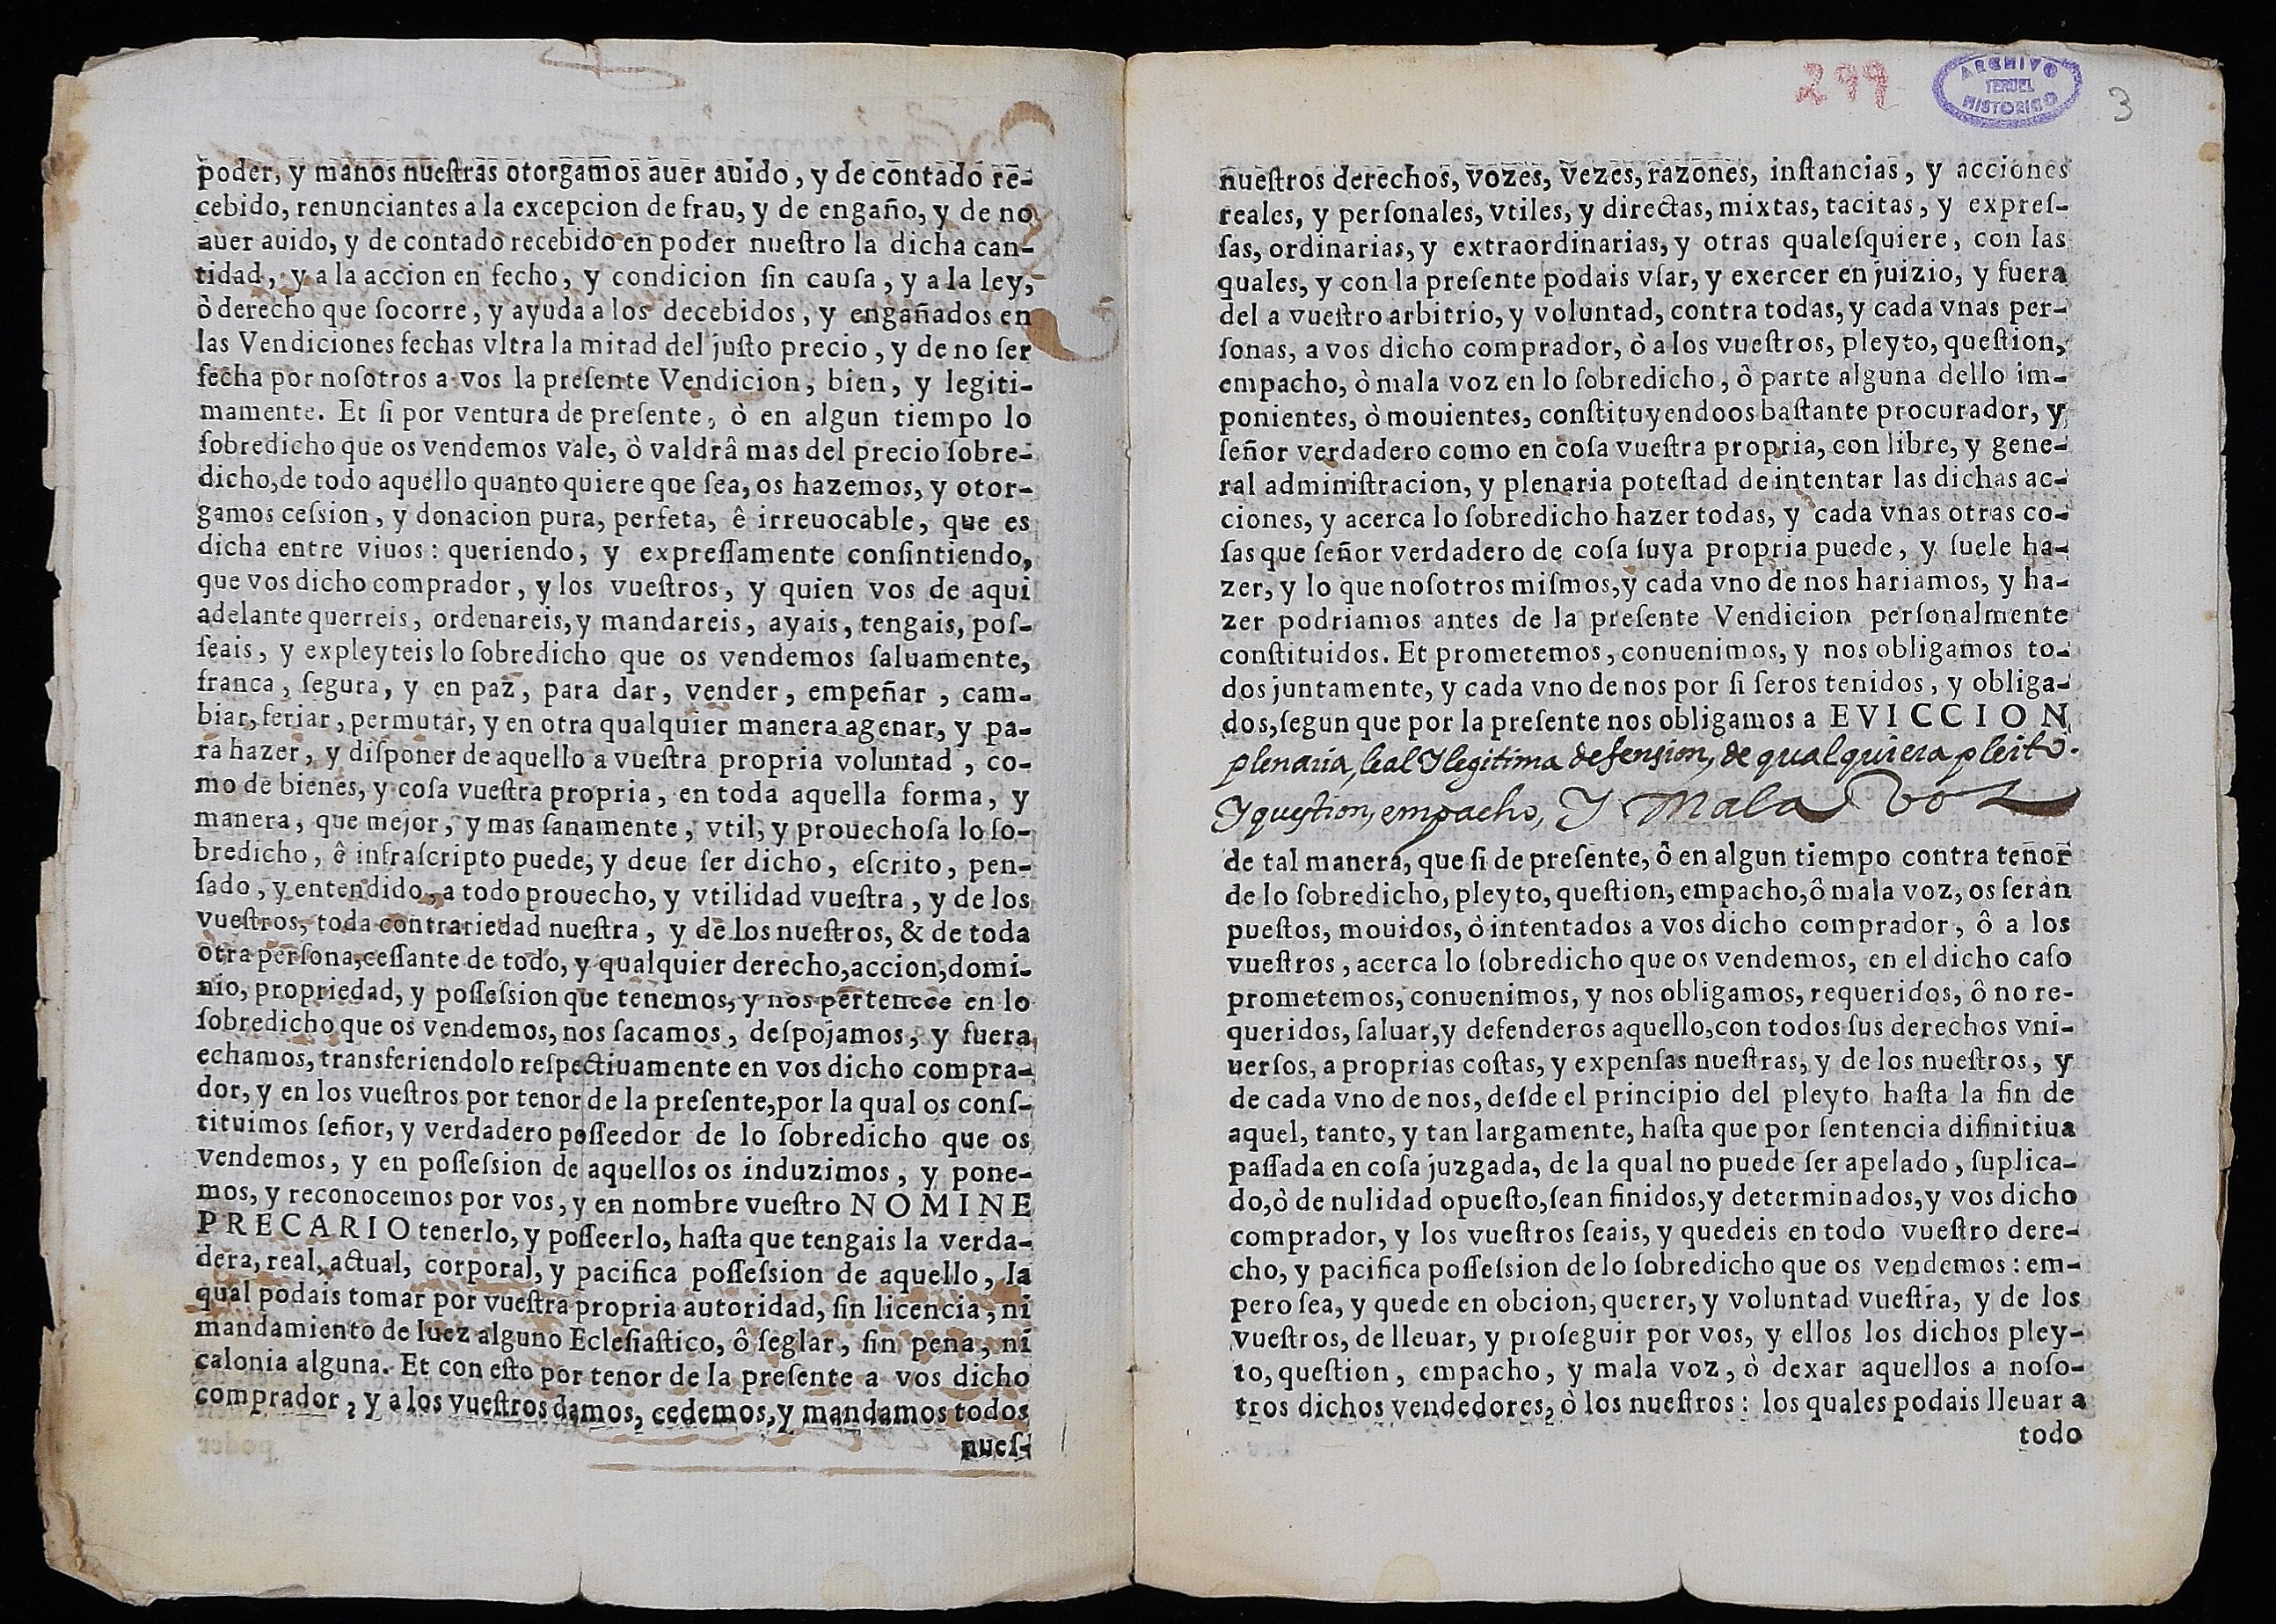 poder, y manos nueſtras otorgamos auer auido, y de contado re-
cebido, renunciantes a la excepcion de frau, y de engaño, y de no
auer auido, y de contado recebido en poder nueſtro la dicha can-
tidad, y a la accion en fecho, y condicion ſin cauſa, y a la ley,
ò derecho que ſocorre, y ayuda a los decebidos, y engañados en
las Vendiciones fechas vltra la mitad del juſto precio, y de no ſer
fecha por noſotros a vos la preſente Vendicion, bien, y legiti-
mamente. Et ſi por ventura de preſente, ò en algun tiempo lo
ſobredicho que os vendemos vale, ò valdrâ mas del precio ſobre-
dicho, de todo aquello quanto quiere que ſea, os hazemos, y otor-
gamos ceſsion, y donacion pura, perfeta, ê irreuocable, que es
dicha entre viuos: queriendo, y expreſſamente conſintiendo,
que vos dicho comprador, y los vueſtros, y quien vos de aqui
adelante querreis, ordenareis, y mandareis, ayais, tengais, poſ-
ſeais, y expleyteis lo ſobredicho que os vendemos ſaluamente,
franca, ſegura, y en paz, para dar, vender, empeñar, cam-
biar, feriar, permutar, y en otra qualquier manera agenar, y pa-
ra hazer, y diſponer de aquello a vueſtra propria voluntad, co-
mo de bienes, y coſa vueſtra propria, en toda aquella forma, y
manera, que mejor, y mas ſanamente, vtil, y prouechoſa lo ſo-
bredicho, ê infraſcripto puede, y deue ſer dicho, eſcrito, pen-
ſado, y entendido, a todo prouecho, y vtilidad vueſtra, y de los
vueſtros, toda contrariedad nueſtra, y de los nueſtros, & de toda
otra perſona, ceſſante de todo, y qualquier derecho, accion, domi-
nio, propriedad, y poſſeſsion que tenemos, y nos pertenece en lo
ſobredicho que os vendemos, nos ſacamos, deſpojamos, y fuera
echamos, transferiendolo reſpectiuamente en vos dicho compra-
dor, y en los vueſtros por tenor de la preſente, por la qual os conſ-
tituimos ſeñor, y verdadero poſſeedor de lo ſobredicho que os
vendemos, y en poſſeſsion de aquellos os induzimos, y pone-
mos, y reconocemos por vos, y en nombre vueſtro NOMINE
PRECARIO tenerlo, y poſſeerlo, haſta que tengais la verda-
dera, real, actual, corporal, y pacifica poſſeſsion de aquello, la
qual podais tomar por vueſtra propria autoridad, ſin licencia, ni
mandamiento de Iuez alguno Ecleſiaſtico, ô ſeglar, ſin pena, ni
calonia alguna. Et con eſto por tenor de la preſente a vos dicho
comprador, y a los vueſtros damos, cedemos, y mandamos todos
nueſ-
299
ARCHIVO
TERUEL
HISTORICO
3
nueſtros derechos, vozes, vezes, razones, inſtancias, y acciones
reales, y perſonales, vtiles, y directas, mixtas, tacitas, y expreſ-
ſas, ordinarias, y extraordinarias, y otras qualeſquiere, con las
quales, y con la preſente podais vſar, y exercer en juizio, y fuera
del a vueſtro arbitrio, y voluntad, contra todas, y cada vnas per-
ſonas, a vos dicho comprador, ò a los vueſtros, pleyto, queſtion,
empacho, ò mala voz en lo ſobredicho, ô parte alguna dello im-
ponientes, ò mouientes, conſtituyendoos baſtante procurador, y
ſeñor verdadero como en coſa vueſtra propria, con libre, y gene-
ral adminiſtracion, y plenaria poteſtad de intentar las dichas ac-
ciones, y acerca lo ſobredicho hazer todas, y cada vnas otras co-
ſas que ſeñor verdadero de coſa ſuya propria puede, y ſuele ha-
zer, y lo que noſotros miſmos, y cada vno de nos hariamos, y ha-
zer podriamos antes de la preſente Vendicion perſonalmente
conſtituidos. Et prometemos, conuenimos, y nos obligamos to-
dos juntamente, y cada vno de nos por ſi ſeros tenidos, y obliga-
dos, ſegun que por la preſente nos obligamos a EVICCION
plenaria, leal Y legitima defension, de qualquiera pleito.
Y question, empacho, Y Mala Voz
de tal manera, que ſi de preſente, ô en algun tiempo contra tenor
de lo ſobredicho, pleyto, queſtion, empacho, ô mala voz, os ſeràn
pueſtos, mouidos, ò intentados a vos dicho comprador, ô a los
vueſtros, acerca lo ſobredicho que os vendemos, en el dicho caſo
prometemos, conuenimos, y nos obligamos, requeridos, ô no re-
queridos, ſaluar, y defenderos aquello, con todos ſus derechos vni-
uerſos, a proprias coſtas, y expenſas nueſtras, y de los nueſtros, y
de cada vno de nos, deſde el principio del pleyto haſta la fin de
aquel, tanto, y tan largamente, haſta que por ſentencia difinitiua
paſſada en coſa juzgada, de la qual no puede ſer apelado, ſuplica-
do, ò de nulidad opueſto, ſean finidos, y determinados, y vos dicho
comprador, y los vueſtros ſeais, y quedeis en todo vueſtro dere-
cho, y pacifica poſſeſsion de lo ſobredicho que os vendemos: em-
pero ſea, y quede en obcion, querer, y voluntad vueſtra, y de los
vueſtros, de lleuar, y proſeguir por vos, y ellos los dichos pley-
to, queſtion, empacho, y mala voz, ò dexar aquellos a noſo-
tros dichos vendedores, ò los nueſtros: los quales podais lleuar a
todo